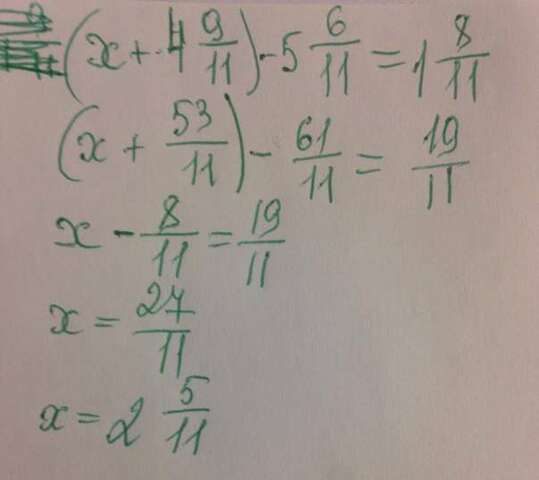 (x + 4 9/11) - 5 6/11 = 1 8/11
(x + 53/11) - 61/11 = 19/11
x - 8/11 = 19/11
x = 27/11
x = 2 5/11